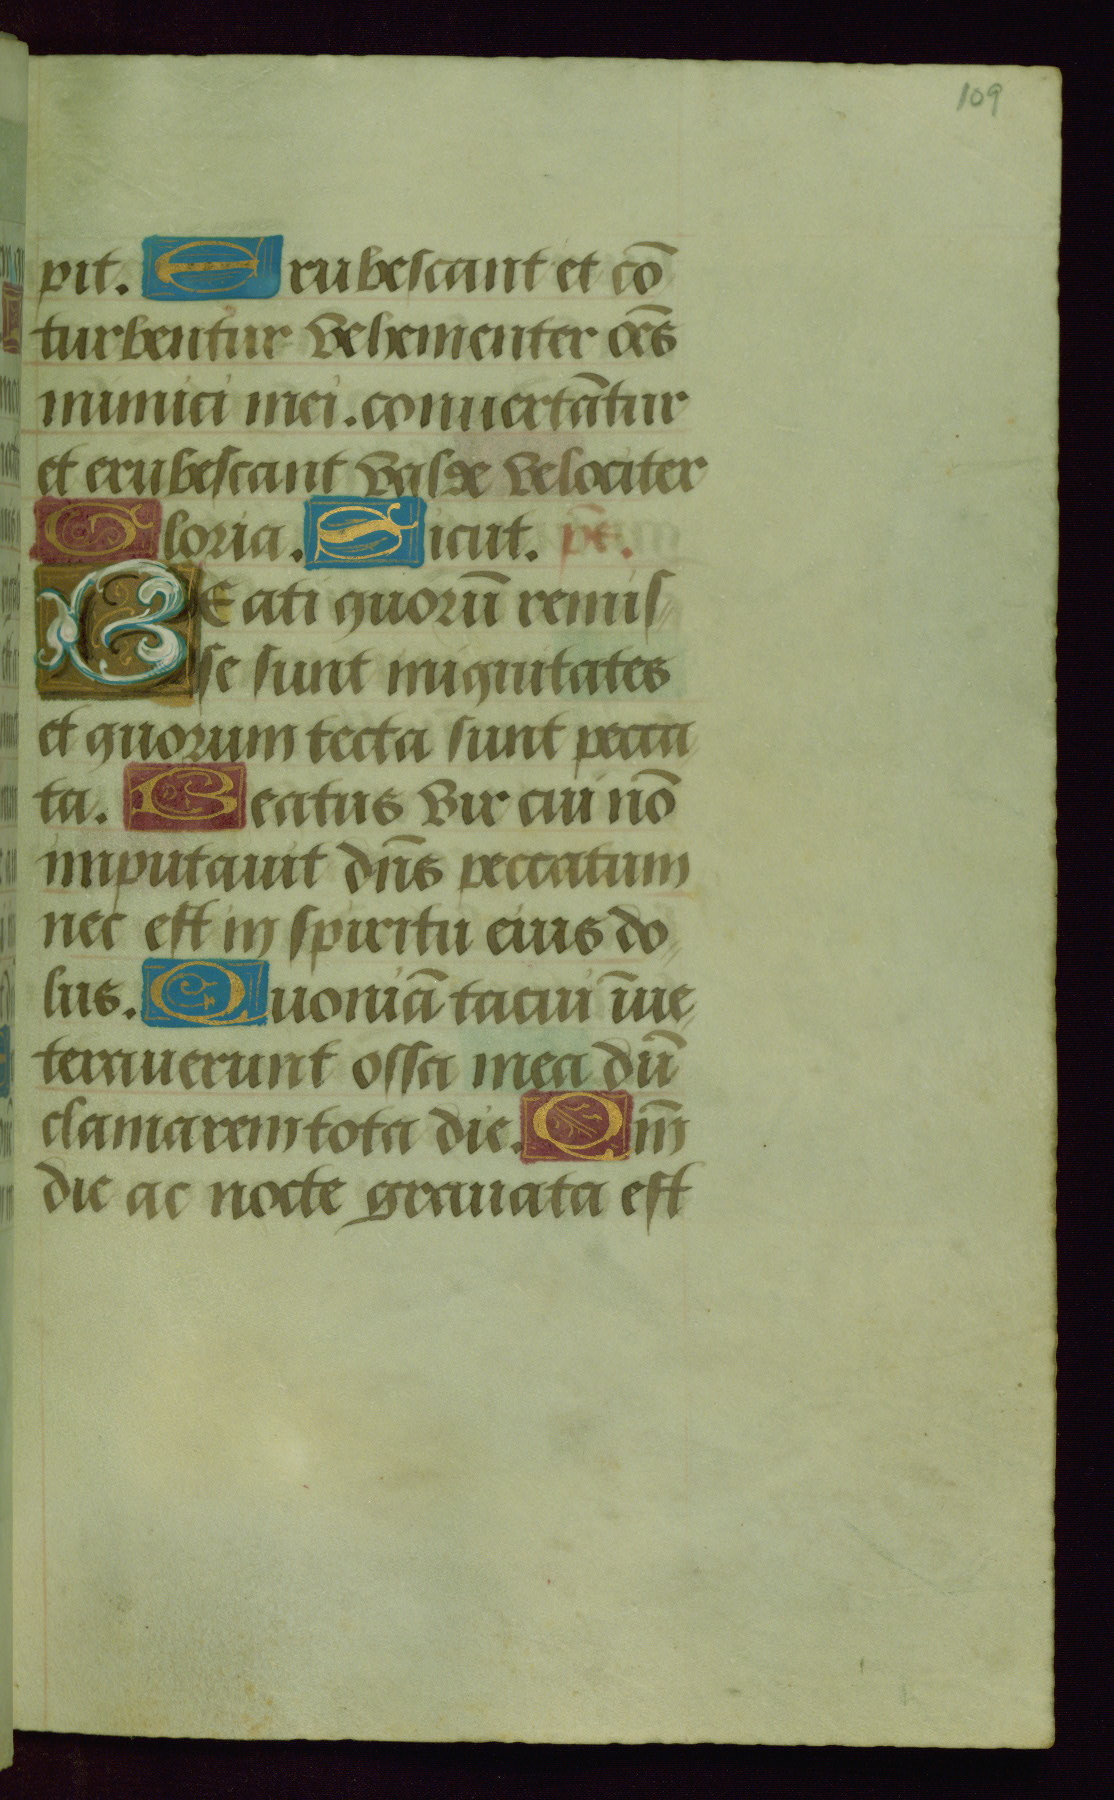 109
pit. Erubescant et cō
turbentur vehementer oēs
inimici mei. conuertātur
et erubescant valde velociter
Gloria. Sicut. ps̄.
BEati quorū remis-
se sunt iniquitates
et quorum tecta sunt pecca-
ta. Beatus vir cui nō
imputauit dn̄s peccatum
nec est in spiritu eius do-
lus. Quoniā tacui īue-
terauerunt ossa mea dū
clamarem tota die. Qm̄
die ac nocte grauata est